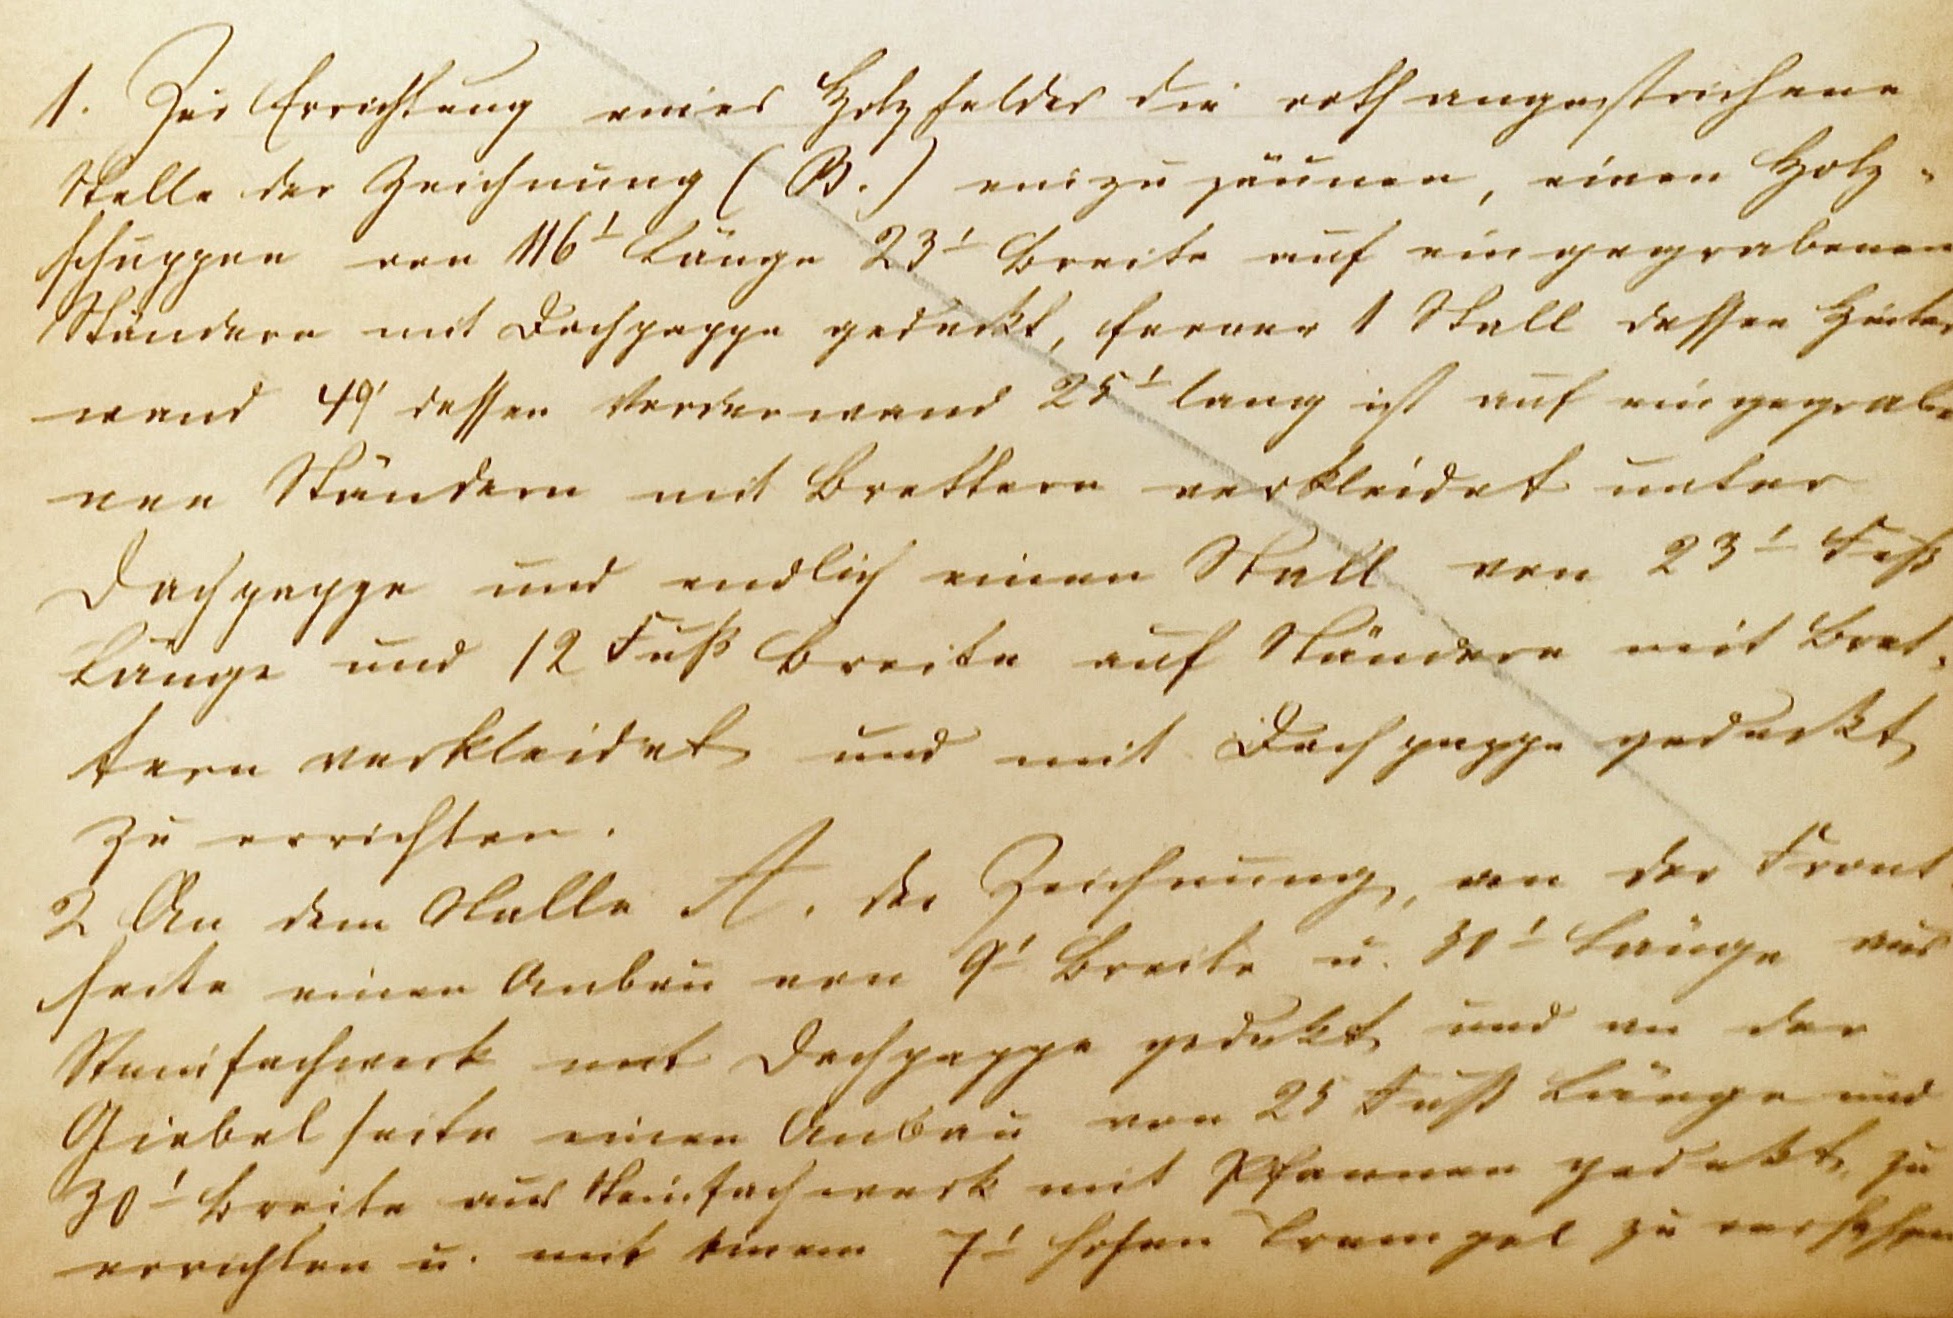 1. Zur Errichtung eines Holzfeldes die roth angestrichene
Stelle der Zeichnung (B.) einzuzäunen, einen Holz-
schuppen von 116' Länge 23' Breite auf eingegrabenen
Ständern mit Dachpappe gedeckt, ferner 1 Stall dessen Hinter
wand 49' dessen Vorderwand 25' lang ist auf eingegrabe
nen Ständern mit Brettern verkleidet unter
Dachpappe und endlich einen Stall von 23' Fuß
Länge und 12 Fuß Breite auf Ständern mit Bret-
tern verkleidet und mit Dachpappe gedeckt
zu errichten.
2 An dem Stalle A. der Zeichnung, an der Front
seite einen Anbau von 9' Breite u. 30' Länge aus
Steinfachwerk mit Dachpappe gedekt und an der
Giebelseite einen Anbau von 25 Fuß Länge und
30' Breite aus Steinfachwerk mit Pfannen gedekt zu
errichten u. mit einem 7' hohen Drempel zu versehen